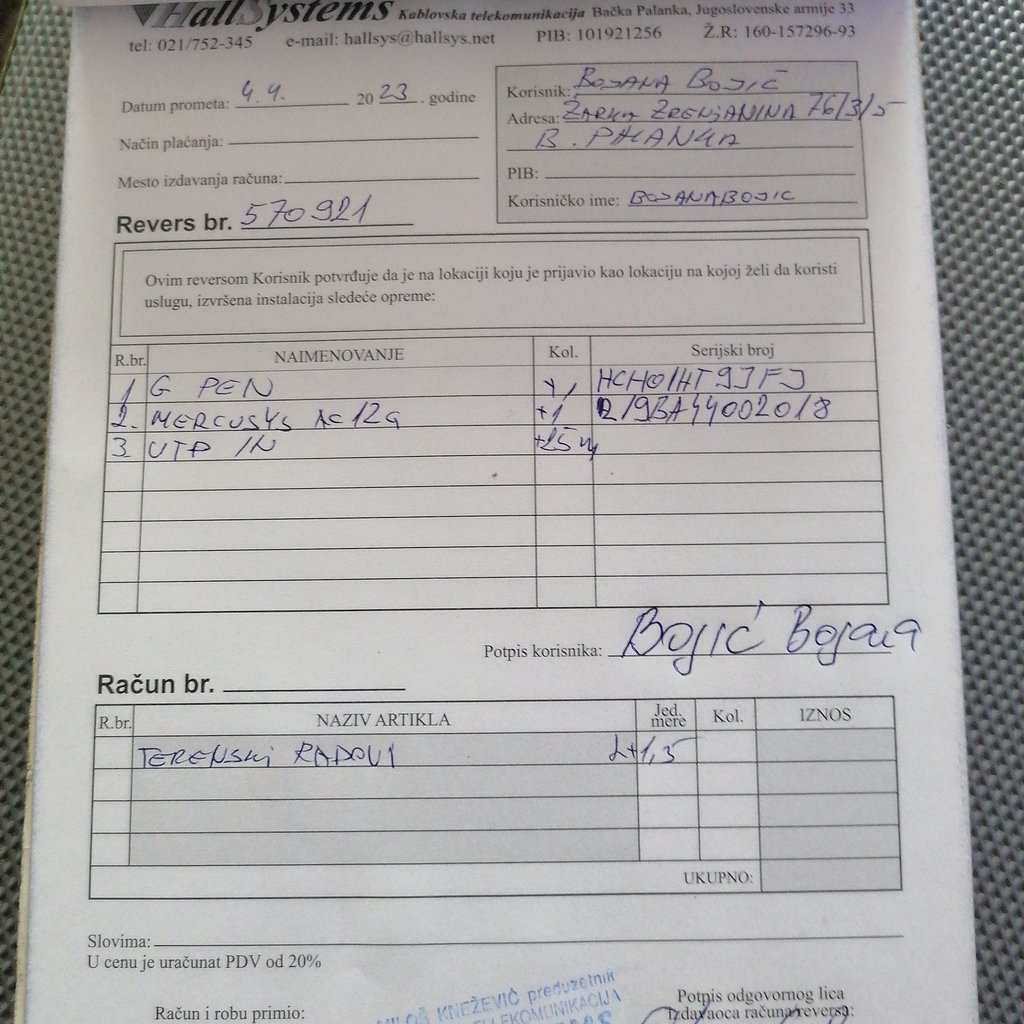 HallSystems Kablovska telekomunikacija Bačka Palanka, Jugoslovenske armije 33
tel: 021/752-345 e-mail: hallsys@hallsys.net PIB: 101921256 Ž.R: 160-157296-93
Datum prometa: 4.4. 2023. godine
Način plaćanja:
Mesto izdavanja računa:
Revers br. 570921
Korisnik: BOJANA BOJIĆ
Adresa: ŽARKA ZRENJANINA 76/3/5
B. PALANKA
PIB:
Korisničko ime: BOJANABOJIC
Ovim reversom Korisnik potvrđuje da je na lokaciji koju je prijavio kao lokaciju na kojoj želi da koristi
uslugu, izvršena instalacija sledeće opreme:
R.br. NAIMENOVANJE Kol. Serijski broj
1 G PEN +1
2. MERCUSYS AC12G +1
3. UTP IN +25m
Potpis korisnika: Bojić Bojana
Račun br.
R.br. NAZIV ARTIKLA Jed. mere Kol. IZNOS
TERENSKI RADOVI
UKUPNO:
Slovima:
U cenu je uračunat PDV od 20%
Račun i robu primio:
MILOŠ KNEŽEVIĆ preduzetnik
TELEKOMUNIKACIJA
Potpis odgovornog lica
izdavaoca računa/reversa: